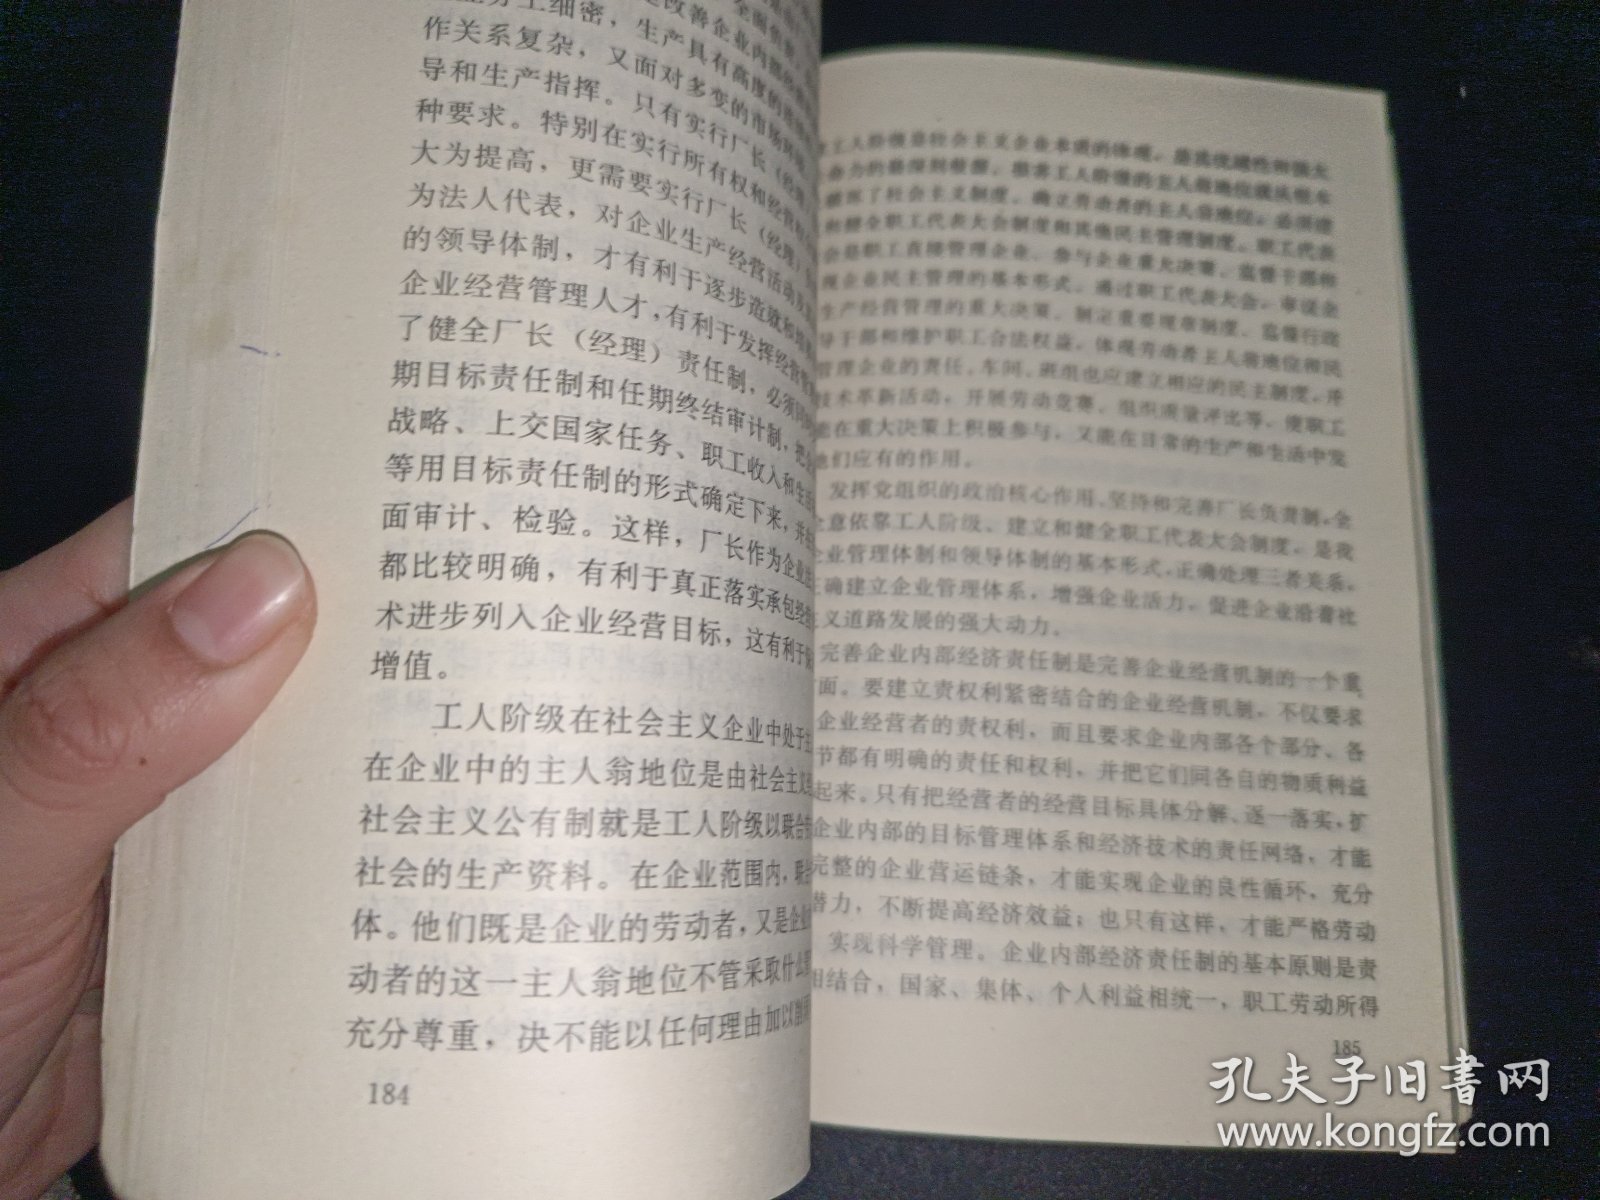 作关系复杂，又面对多变的市场环境
导和生产指挥。只有实行厂长（经理
种要求。特别在实行所有权和经营权
大为提高，更需要实行厂长（经理）
为法人代表，对企业生产经营活动
的领导体制，才有利于逐步造就和
企业经营管理人才，有利于发挥经营
了健全厂长（经理）责任制，必须
期目标责任制和任期终结审计制，把
战略、上交国家任务、职工收入和生活
等用目标责任制的形式确定下来，并
面审计、检验。这样，厂长作为企业
都比较明确，有利于真正落实承包经营
术进步列入企业经营目标，这有利于
增值。
工人阶级在社会主义企业中处于主
在企业中的主人翁地位是由社会主义
社会主义公有制就是工人阶级以联合
社会的生产资料。在企业范围内，联
体。他们既是企业的劳动者，又是企业
动者的这一主人翁地位不管采取什么
充分尊重，决不能以任何理由加以削
184
工人阶级是社会主义企业本质的体现，是其优越性和强大
命力的最深刻根源。
了社会主义制度，确立劳动者的主人翁地位，必须建
和健全职工代表大会制度和其他民主管理制度。职工代表
会是职工直接管理企业、参与企业重大决策、监督干部和
现企业民主管理的基本形式。通过职工代表大会，审议企
生产经营管理的重大决策、制定重要规章制度、监督行政
导干部和维护职工合法权益，体现劳动者主人翁地位和民
管理企业的责任。车间、班组也应建立相应的民主制度，开
技术革新活动，开展劳动竞赛、组织质量评比等，使职工
能在重大决策上积极参与，又能在日常的生产和生活中发
他们应有的作用。
发挥党组织的政治核心作用、坚持和完善厂长负责制、全
意依靠工人阶级、建立和健全职工代表大会制度，是我
企业管理体制和领导体制的基本形式，正确处理三者关系，
正确建立企业管理体系，增强企业活力，促进企业沿着社
主义道路发展的强大动力。
完善企业内部经济责任制是完善企业经营机制的一个重
方面。要建立责权利紧密结合的企业经营机制，不仅要求
企业经营者的责权利，而且要求企业内部各个部分、各
节都有明确的责任和权利，并把它们同各自的物质利益
起来。只有把经营者的经营目标具体分解、逐一落实，扩
企业内部的目标管理体系和经济技术的责任网络，才能
完整的企业营运链条，才能实现企业的良性循环，充分
潜力，不断提高经济效益；也只有这样，才能严格劳动
实现科学管理。企业内部经济责任制的基本原则是责
相结合，国家、集体、个人利益相统一，职工劳动所得
185
孔夫子旧书网
www.kongfz.com